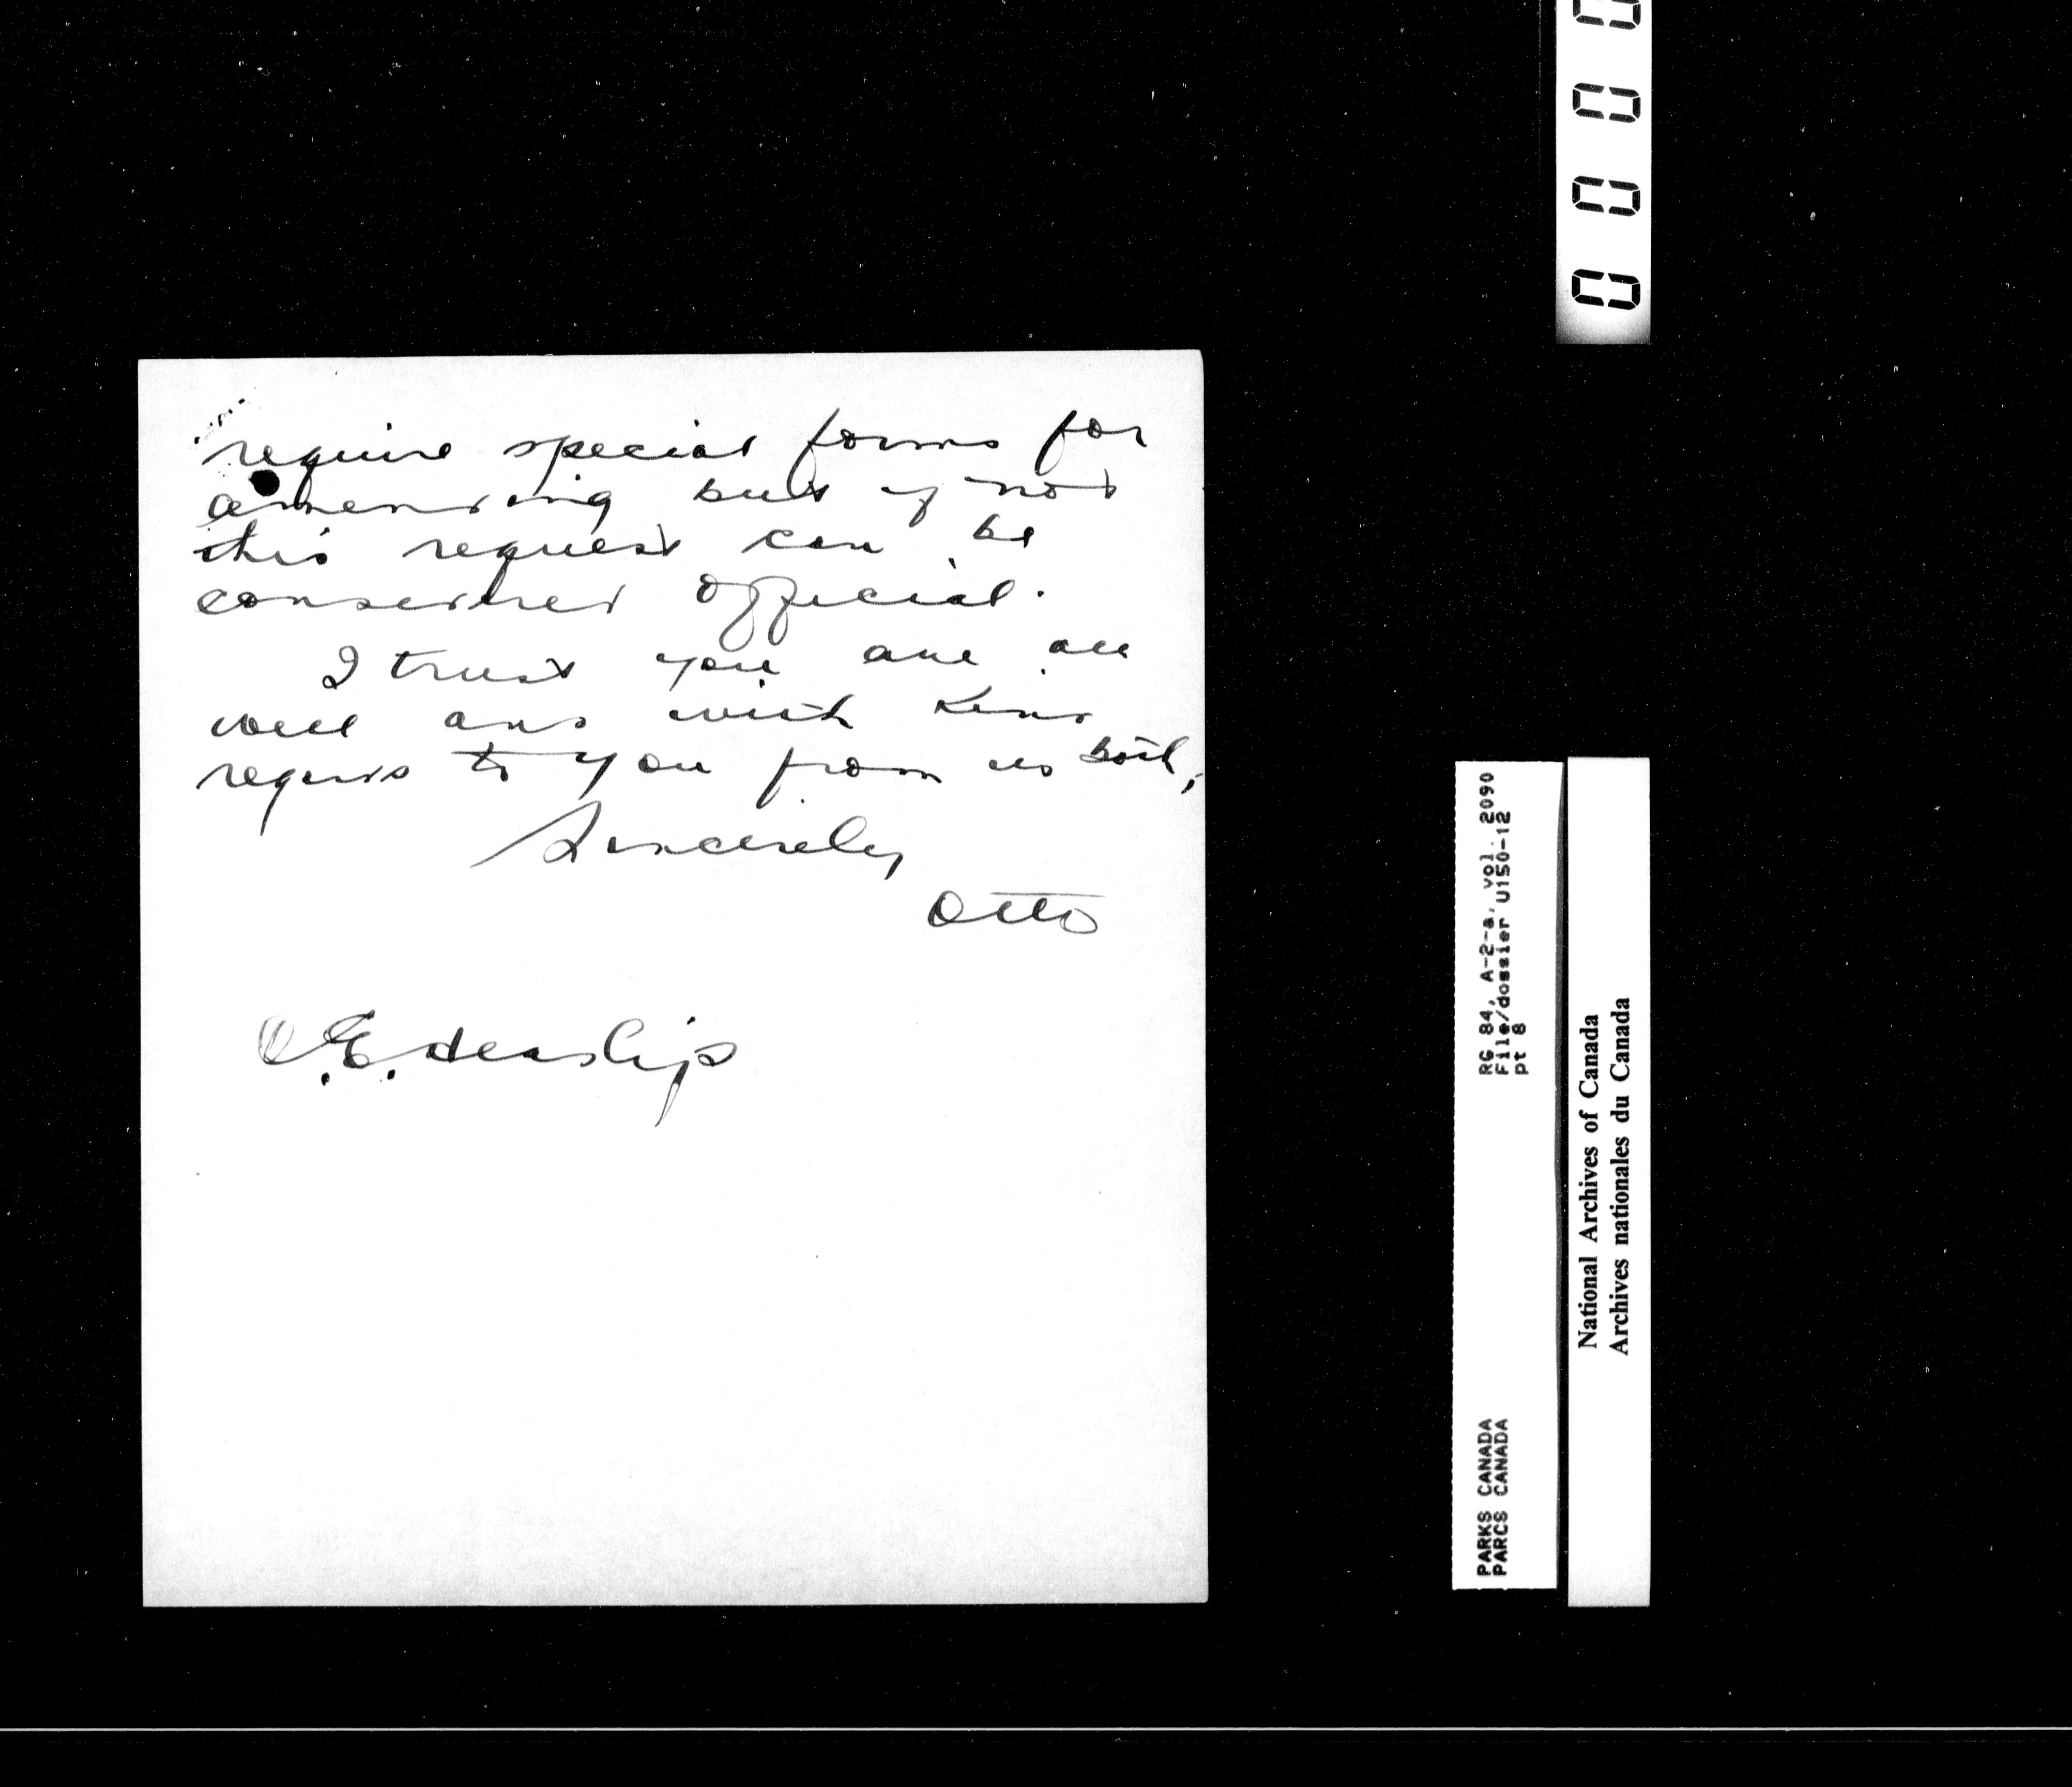 require special forms for
amending but if not
this request can be
considered official.
I trust you are all
well and with kind
regards to you from us both,
Sincerely
Otto
O.E.
0 0 0 0
RG 84, A-2-a, vol. 2090
File/dossier U150-12
pt 8
PARKS CANADA
PARCS CANADA
National Archives of Canada
Archives nationales du Canada